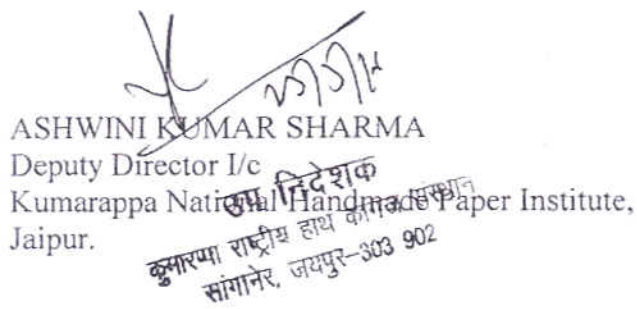 ASHWINI KUMAR SHARMA
Deputy Director I/c
Kumarappa National Handmade Paper Institute,
Jaipur.
उप निदेशक
कुमारप्पा राष्ट्रीय हाथ कागज संस्थान
सांगानेर, जयपुर-303 902